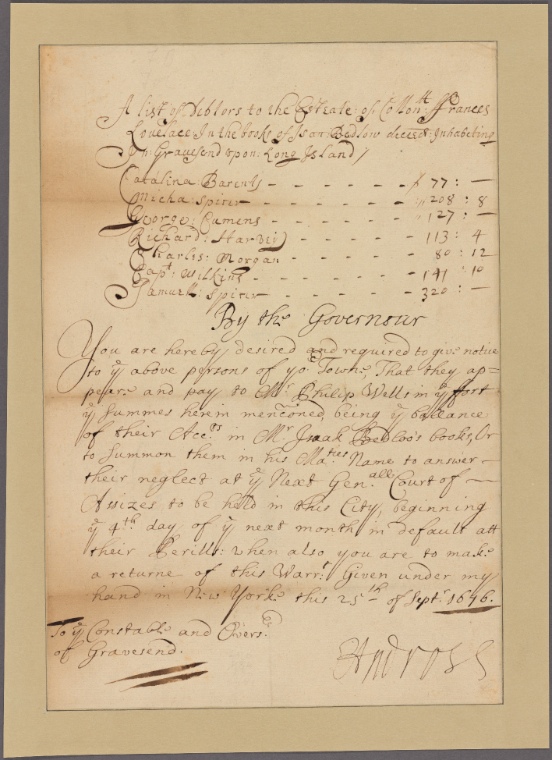 A list of Debtors to the Estate of Collon:ll ffrances
Lovelace In the books of Isaac Bedlow deceest: Inhabeting
In: Gravesend upon: Long Island /
Catalina Barents - - - - - - ƒ 77 : —
Micha: Spicer - - - - - - " 208 : 8
George: Cumens - - - - - - " 127 : —
Richard: Harvie - - - - - 113 : 4
Charlis: Morgan - - - - - 80 : 12
Capt: Wilkins - - - - - 141 : 10
Samuell: Spicer - - - - - 320 : —
By the Governour
You are hereby desired and required to give notice
to ye above persons of yor Towne, That they ap-
peare and pay to Mr. Philip Wells in ye ffort
ye Summes herein menconed, being ye ballance
of their Accots in Mr Isaak Bedloo's books, Or
to Summon them in his Maties Name to answer —
their neglect at ye Next Gen:all Court of —
Assizes to be held in this City, beginning
ye 4th day of ye next month in default att
their Perills: when also you are to make
a returne of this Warrt. Given under my
hand in New Yorke this 25th of Septr. 1676.
To ye Constable and Overs:
of Gravesend.
EAndross